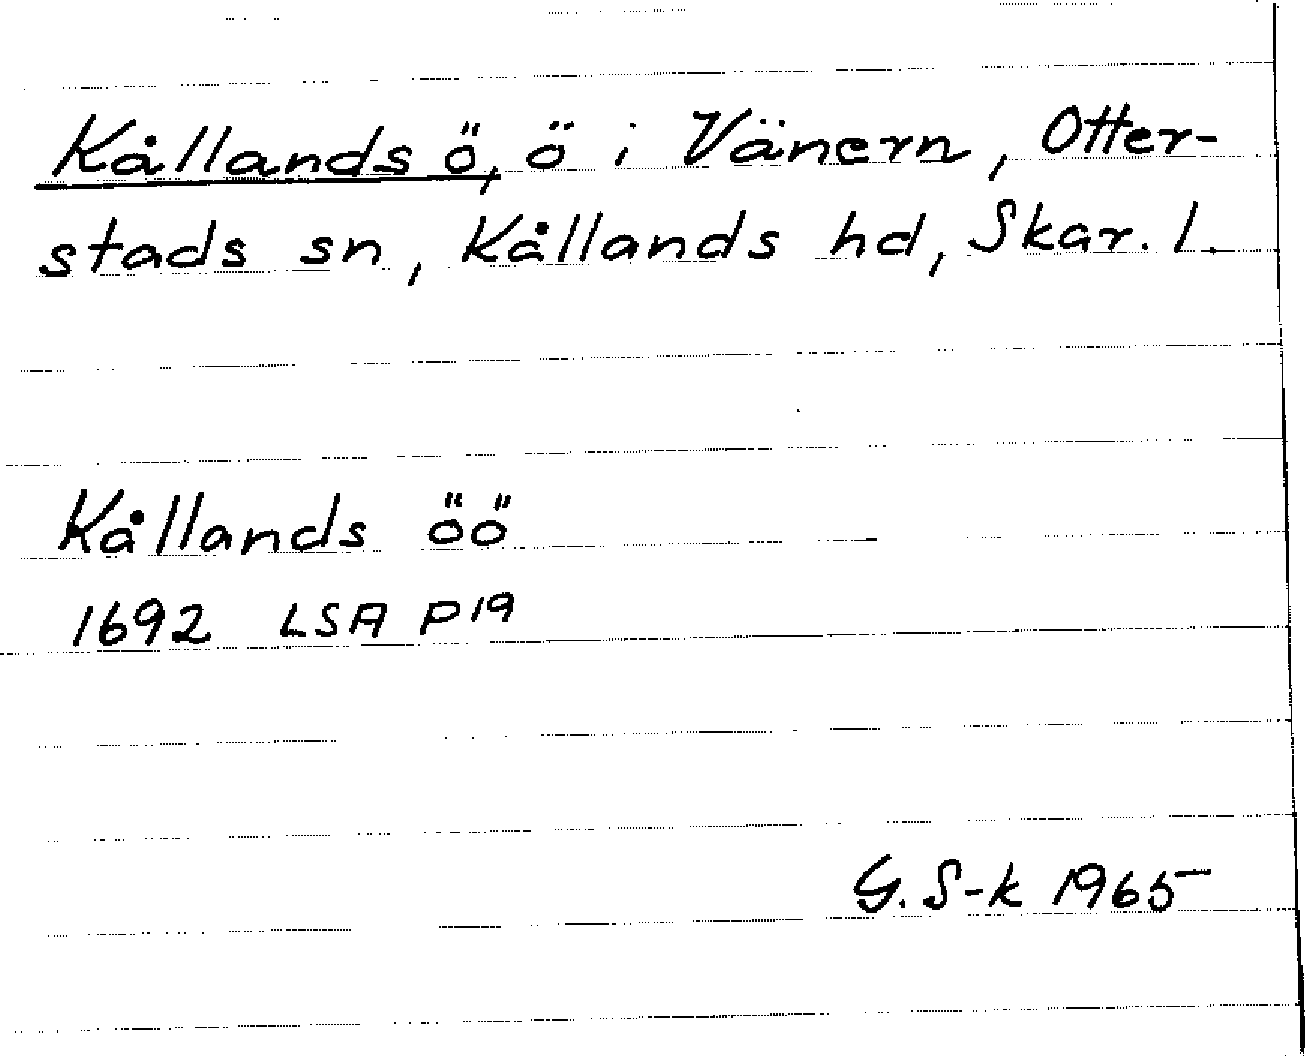 Kållands ö, ö i Vänern, Otter-
stads sn, Kållands hd, Skar. l.
Kållands öö
1692 LSA P19
G. S-k 1965